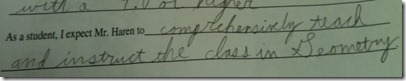 with a 4.0 or higher
As a student, I expect Mr. Haren to comprehensively teach
and instruct the class in Geometry